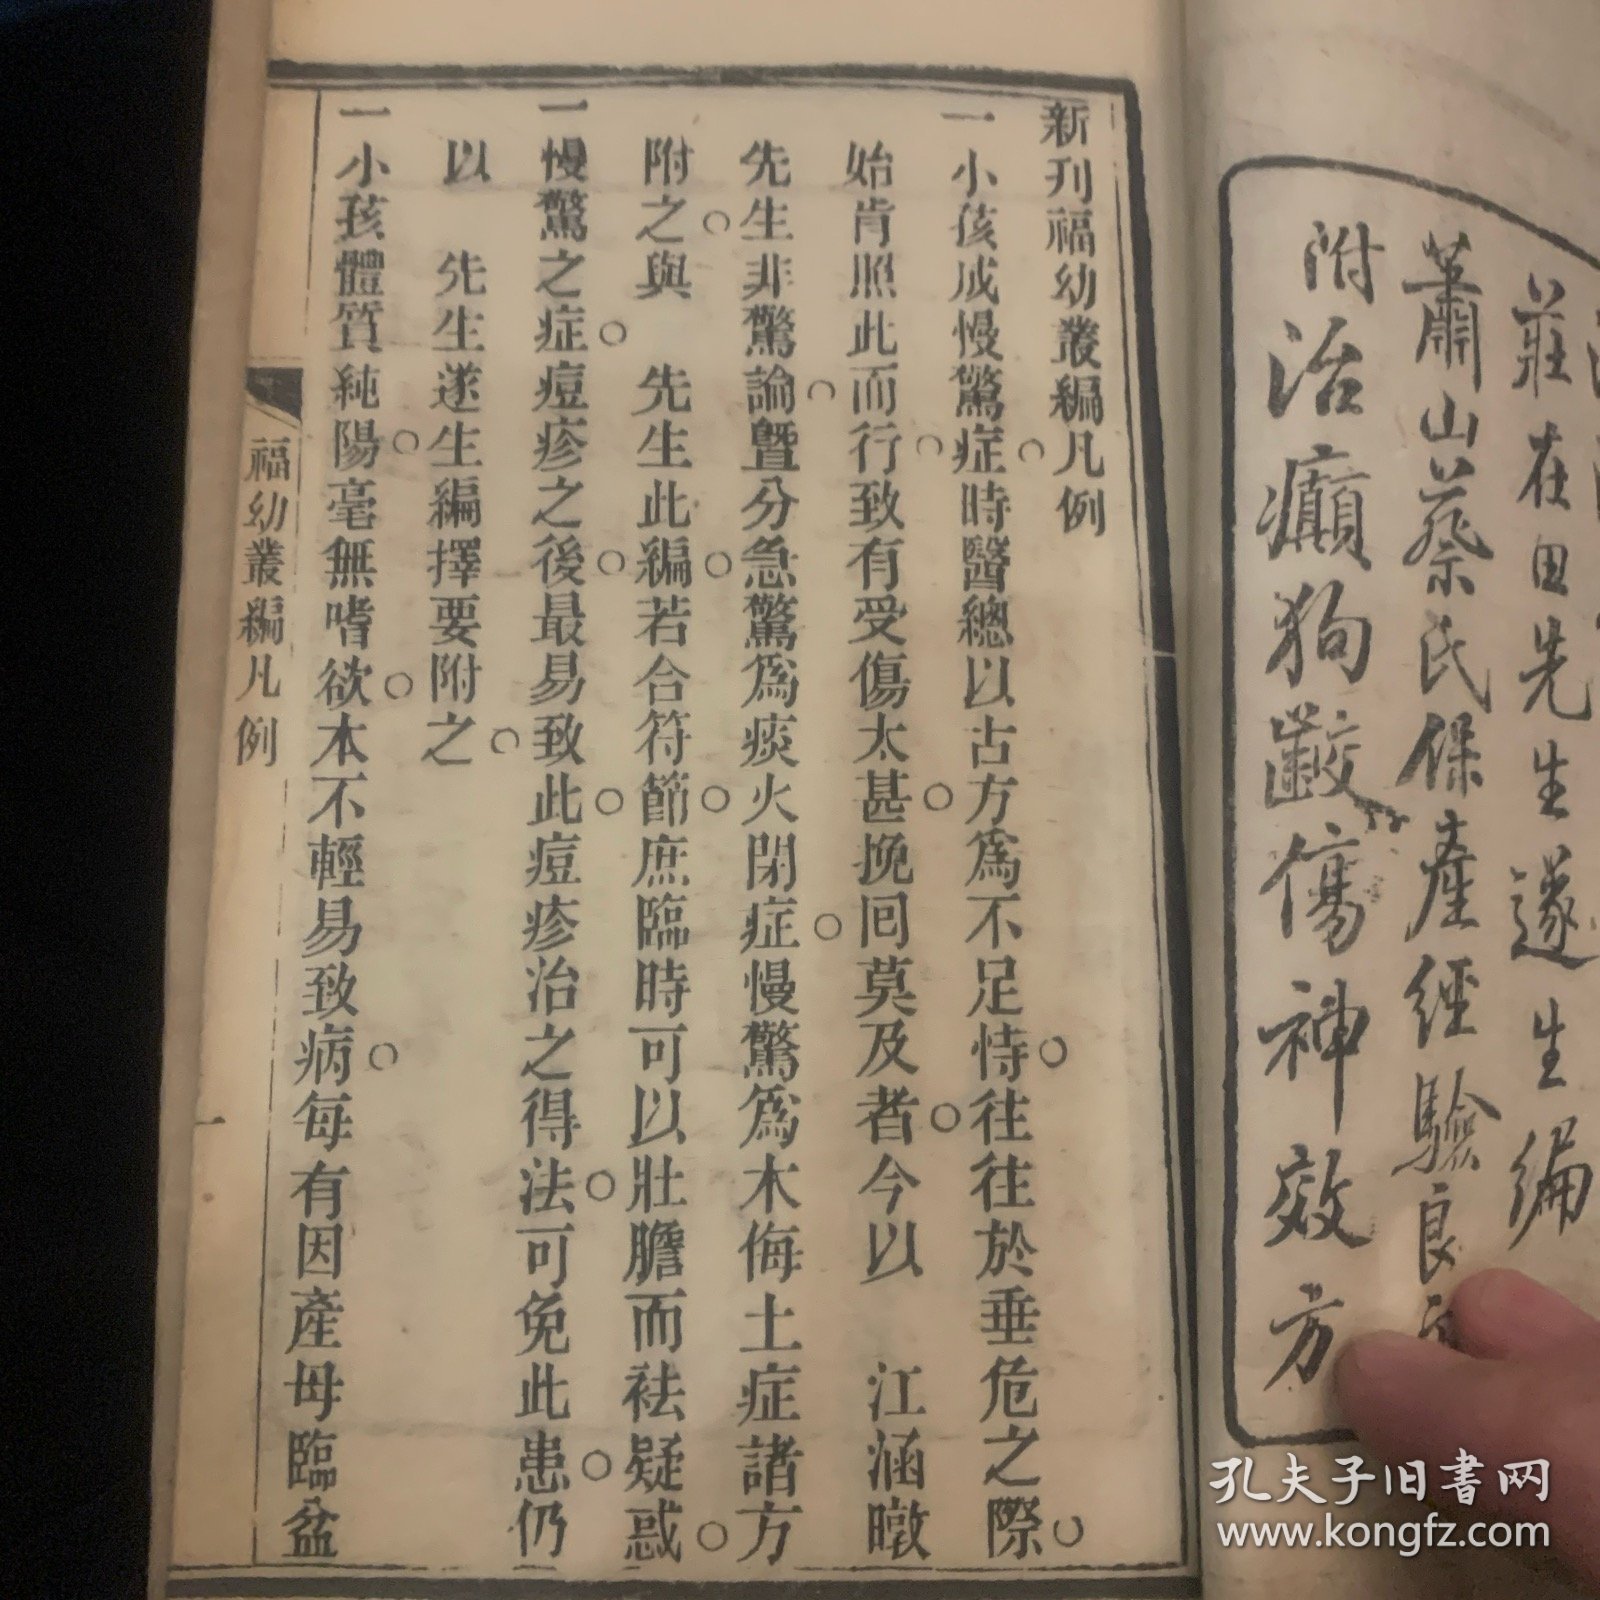 莊在田先生遂生編
蕭山蔡氏保產經驗良
附治癲狗齩傷神效方
新刊福幼叢編凡例
一小孩成慢驚症時醫總以古方爲不足恃往往於垂危之際
始肯照此而行致有受傷太甚挽囘莫及者今以　江涵暾
先生非驚論暨分急驚爲痰火閉症慢驚爲木侮土症諸方
附之與　先生此編若合符節庶臨時可以壯膽而祛疑惑
一慢驚之症痘疹之後最易致此痘疹治之得法可免此患仍
以　先生遂生編擇要附之
一小孩體質純陽毫無嗜欲本不輕易致病每有因產母臨盆
福幼叢編凡例
一
孔夫子旧書网
www.kongfz.com